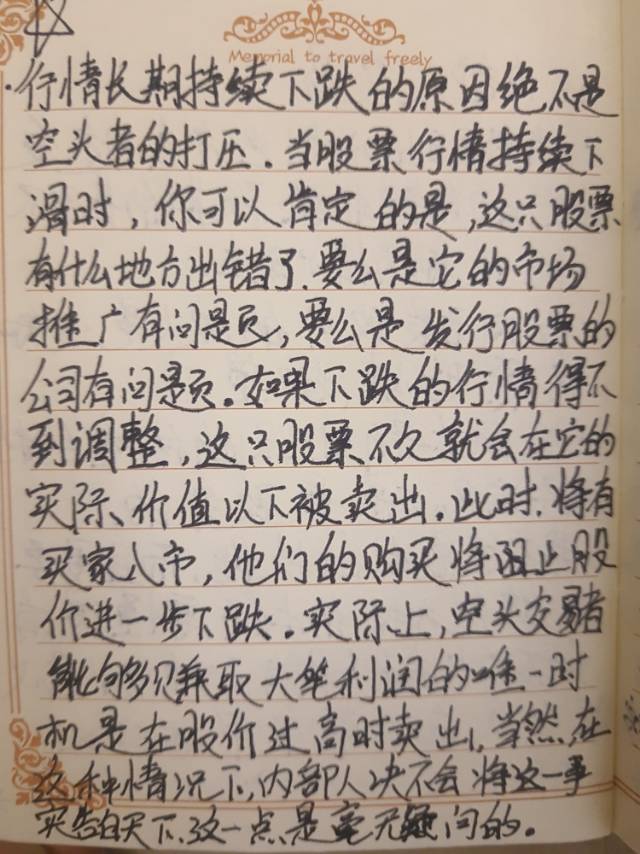 Memorial to travel freely
·行情长期持续下跌的原因绝不是
空头者的打压.当股票行情持续下
滑时,你可以肯定的是,这只股票
有什么地方出错了.要么是它的市场
推广有问题,要么是发行股票的
公司有问题.如果下跌的行情得不
到调整,这只股票不久就会在它的
实际价值以下被卖出.此时.将有
买家入市,他们的购买将阻止股
价进一步下跌.实际上,空头交易者
能够赚取大笔利润的唯一时
机是在股价过高时卖出,当然在
这种情况下,内部人决不会将这一事
实告白天下.这一点是毫无疑问的.